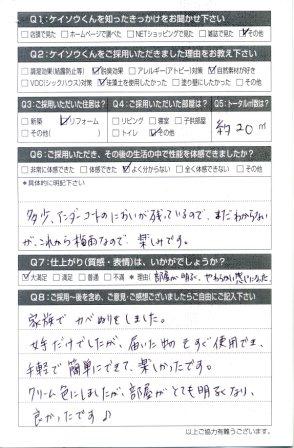 Q1:ケイソウくんを知ったきっかけをお聞かせ下さい
□店頭で見た □ホームページで調べた □NETショッピングで見た □雑誌で見た ☑その他
Q2:ケイソウくんをご採用いただきました理由をお教え下さい
□調湿効果(結露防止等) ☑脱臭効果 □アレルギー(アトピー)対策 ☑自然素材が好き
□VOC(シックハウス)対策 ☑珪藻土を使用したかった □塗り壁にしたかった □その他
Q3:ご採用いただいた住居は? Q4:ご採用いただいた部屋は? Q5:トータル㎡数は?
□新築 ☑リフォーム □リビング □寝室 □子供部屋 約20㎡
□その他( ) □トイレ ☑その他
Q6:ご採用いただき、その後の生活の中で性能を体感できましたか?
□非常に体感できた □体感できた ☑よく分からない □全く体感できない □その他
*具体的に明記下さい
多少、インダーコートのにおいが残っているので、まだわからない
が、これから梅雨なので 楽しみです。
Q7:仕上がり(質感・表情)は、いかがでしょうか?
☑大満足 □満足 □普通 □不満 *理由(部屋が明るく、やわらかい感じになった
Q8:ご採用〜後を含め、ご意見・ご感想ございましたらご自由にご記入下さい
家族で カベぬりをしました。
女手だけでしたが、届いた物をすぐ使用でき、
手軽で簡単にできて、楽しかったです。
クリーム色にしましたが、部屋がとても明るくなり、
良かったです♪
以上ご協力有難うございます。